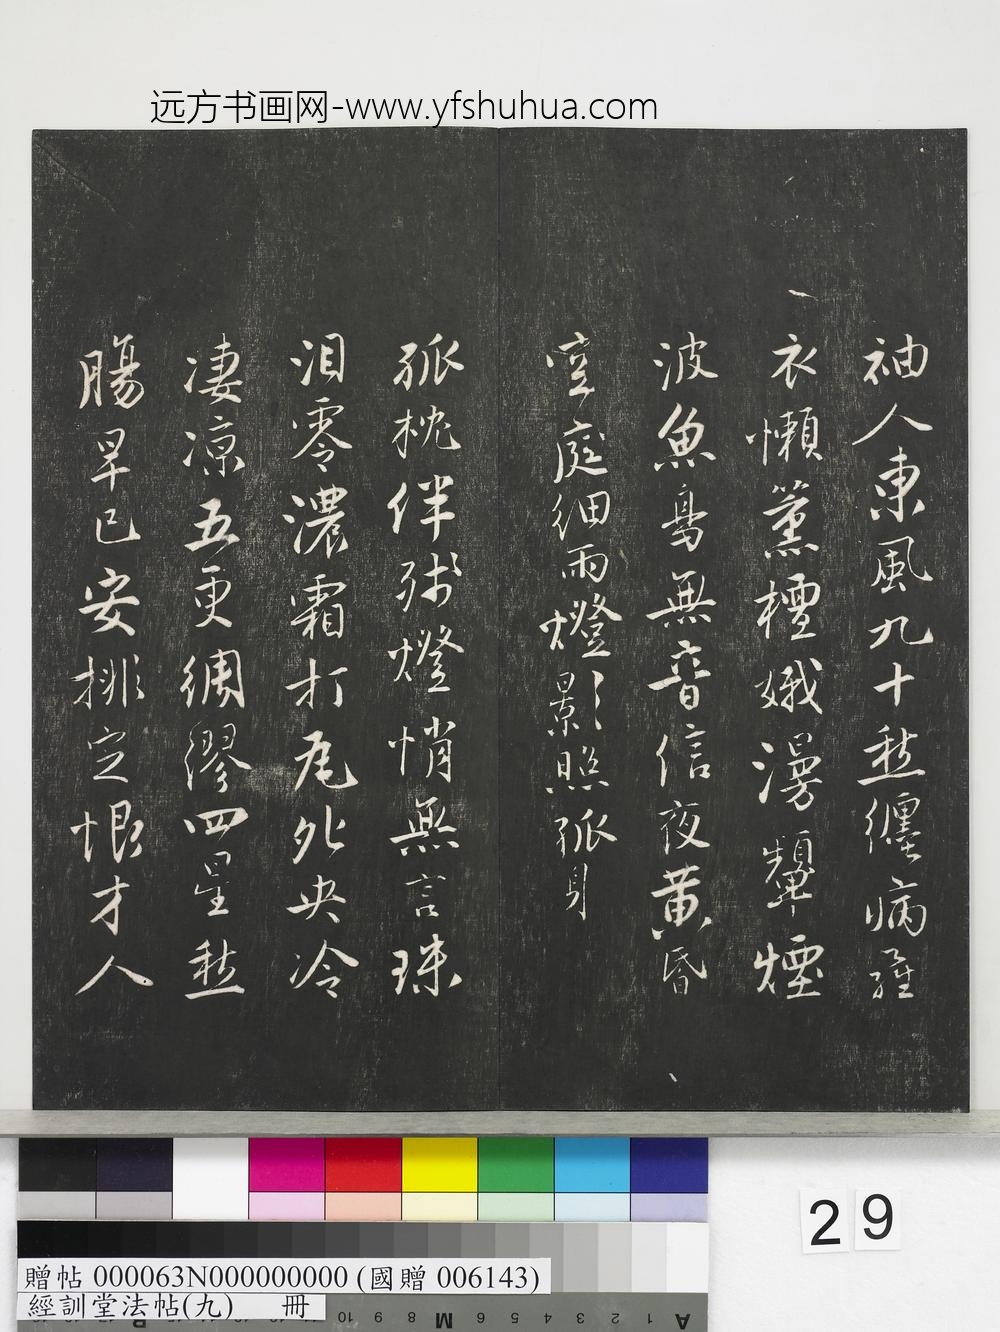 远方书画网-www.yfshuhua.com
袖人東風九十愁纏病羅
衣懶薰檀娥湯顰煙
波魚鳥無音信夜黄昏
空庭細雨燈影照孤身
孤枕伴殘燈悄無言珠
泪零濃霜打瓦鴛央冷
凄凉五更綢繆四星愁
腸早已安排定恨才人
29
贈帖 000063N000000000 (國贈 006143)
經訓堂法帖(九) 冊
R 10 9 8 M 6 5 4 3 2 1 A